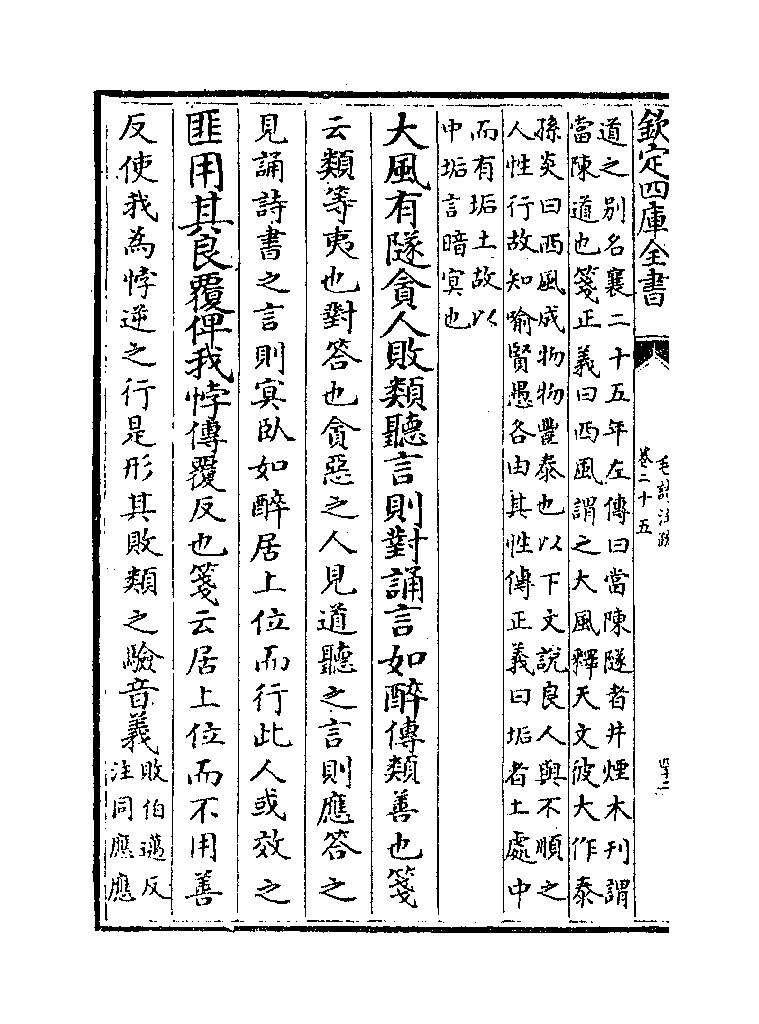 欽定四庫全書
毛詩注疏
卷二十五
四十二
道之别名襄二十五年左傳曰當陳隧者井煙木刋謂
當陳道也箋正義曰西風謂之大風釋天文彼大作泰
孫炎曰西風成物物豐泰也以下文說良人與不順之
人性行故知喻賢愚各由其性傳正義曰垢者土處中
而有垢土故以
中垢言暗㝠也
大風有隧貪人敗類聽言則對誦言如醉傳類善也箋
云類等夷也對答也貪惡之人見道聽之言則應答之
見誦詩書之言則㝠臥如醉居上位而行此人或效之
匪用其良覆俾我悖傳覆反也箋云居上位而不用善
反使我為悖逆之行是形其敗類之驗音義
敗伯邁反
注同應應